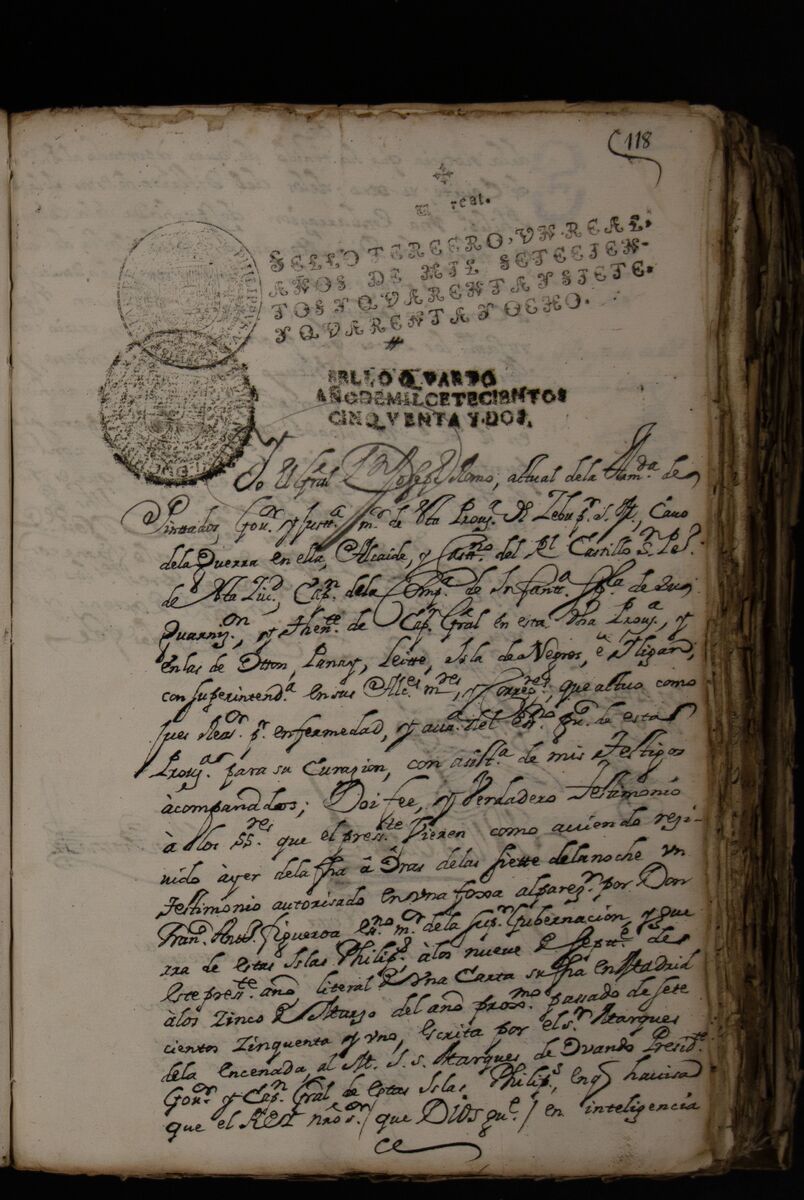 118
Un real.
SELLO TERCERO, VN REAL,
AÑOS DE MIL SETECIEN-
TOS Y QVARENTA Y SIETE.
Y QVARENTA Y OCHO.
SELLO QVARTO
AÑO DE MIL CETECIENTOS
CINQVENTA Y DOS.
Yo el Gral Dn Joseph Romo, actual de la Armda de
Pintados, Govr. y Justta. mr de Sta Provª. de Zebu pr. S. M., Cavo
de la Guerra en ella, Alcaide, y Casttno del Rl Castillo Sn Pe.
de Sta Ziud, Capn. de la Compª. de Infantª. Spla de su
Guarnion, y Thente. de Capn Gral en esta dha Provª, y
en las de Otton, Panay, Leitte, Isla de Negros, e Iligan,
con superintendª en sus Alces mres, y Corregres, que actuo como
jues Rear pr. enfermedad, y aucª. del Essno puco de esta
Provª. para su Curazion, con asistª. de mis Testigos
acompanados; Doi fee, y Verdadero Testimonio
à los SSres que el presste Vieren como aviendo regi-
vido àyer de la fha â Oras de las siette de la noche un
testimonio autorisado en una foxa al pareqr. por Don
Franco. Antto. figueroa esno mr. de la supr. Gubernacion, y gue
rra de estas Islas Philips. à los nueve de Septte. de
este presste año, literal de Una Carta su fha en Madrid
à los Zinco de Marzo del año proxmo. passado de sete
cientos Zinquenta y uno, escrita por el sr. Marques
de la Encenada, al M. I. S. Marques de Ovando Presidte
Govor. y Capn Gral de estas Islas Philips, en q havisa
que el Rey nrô Sr. / que Dios gue. / en inteligencia